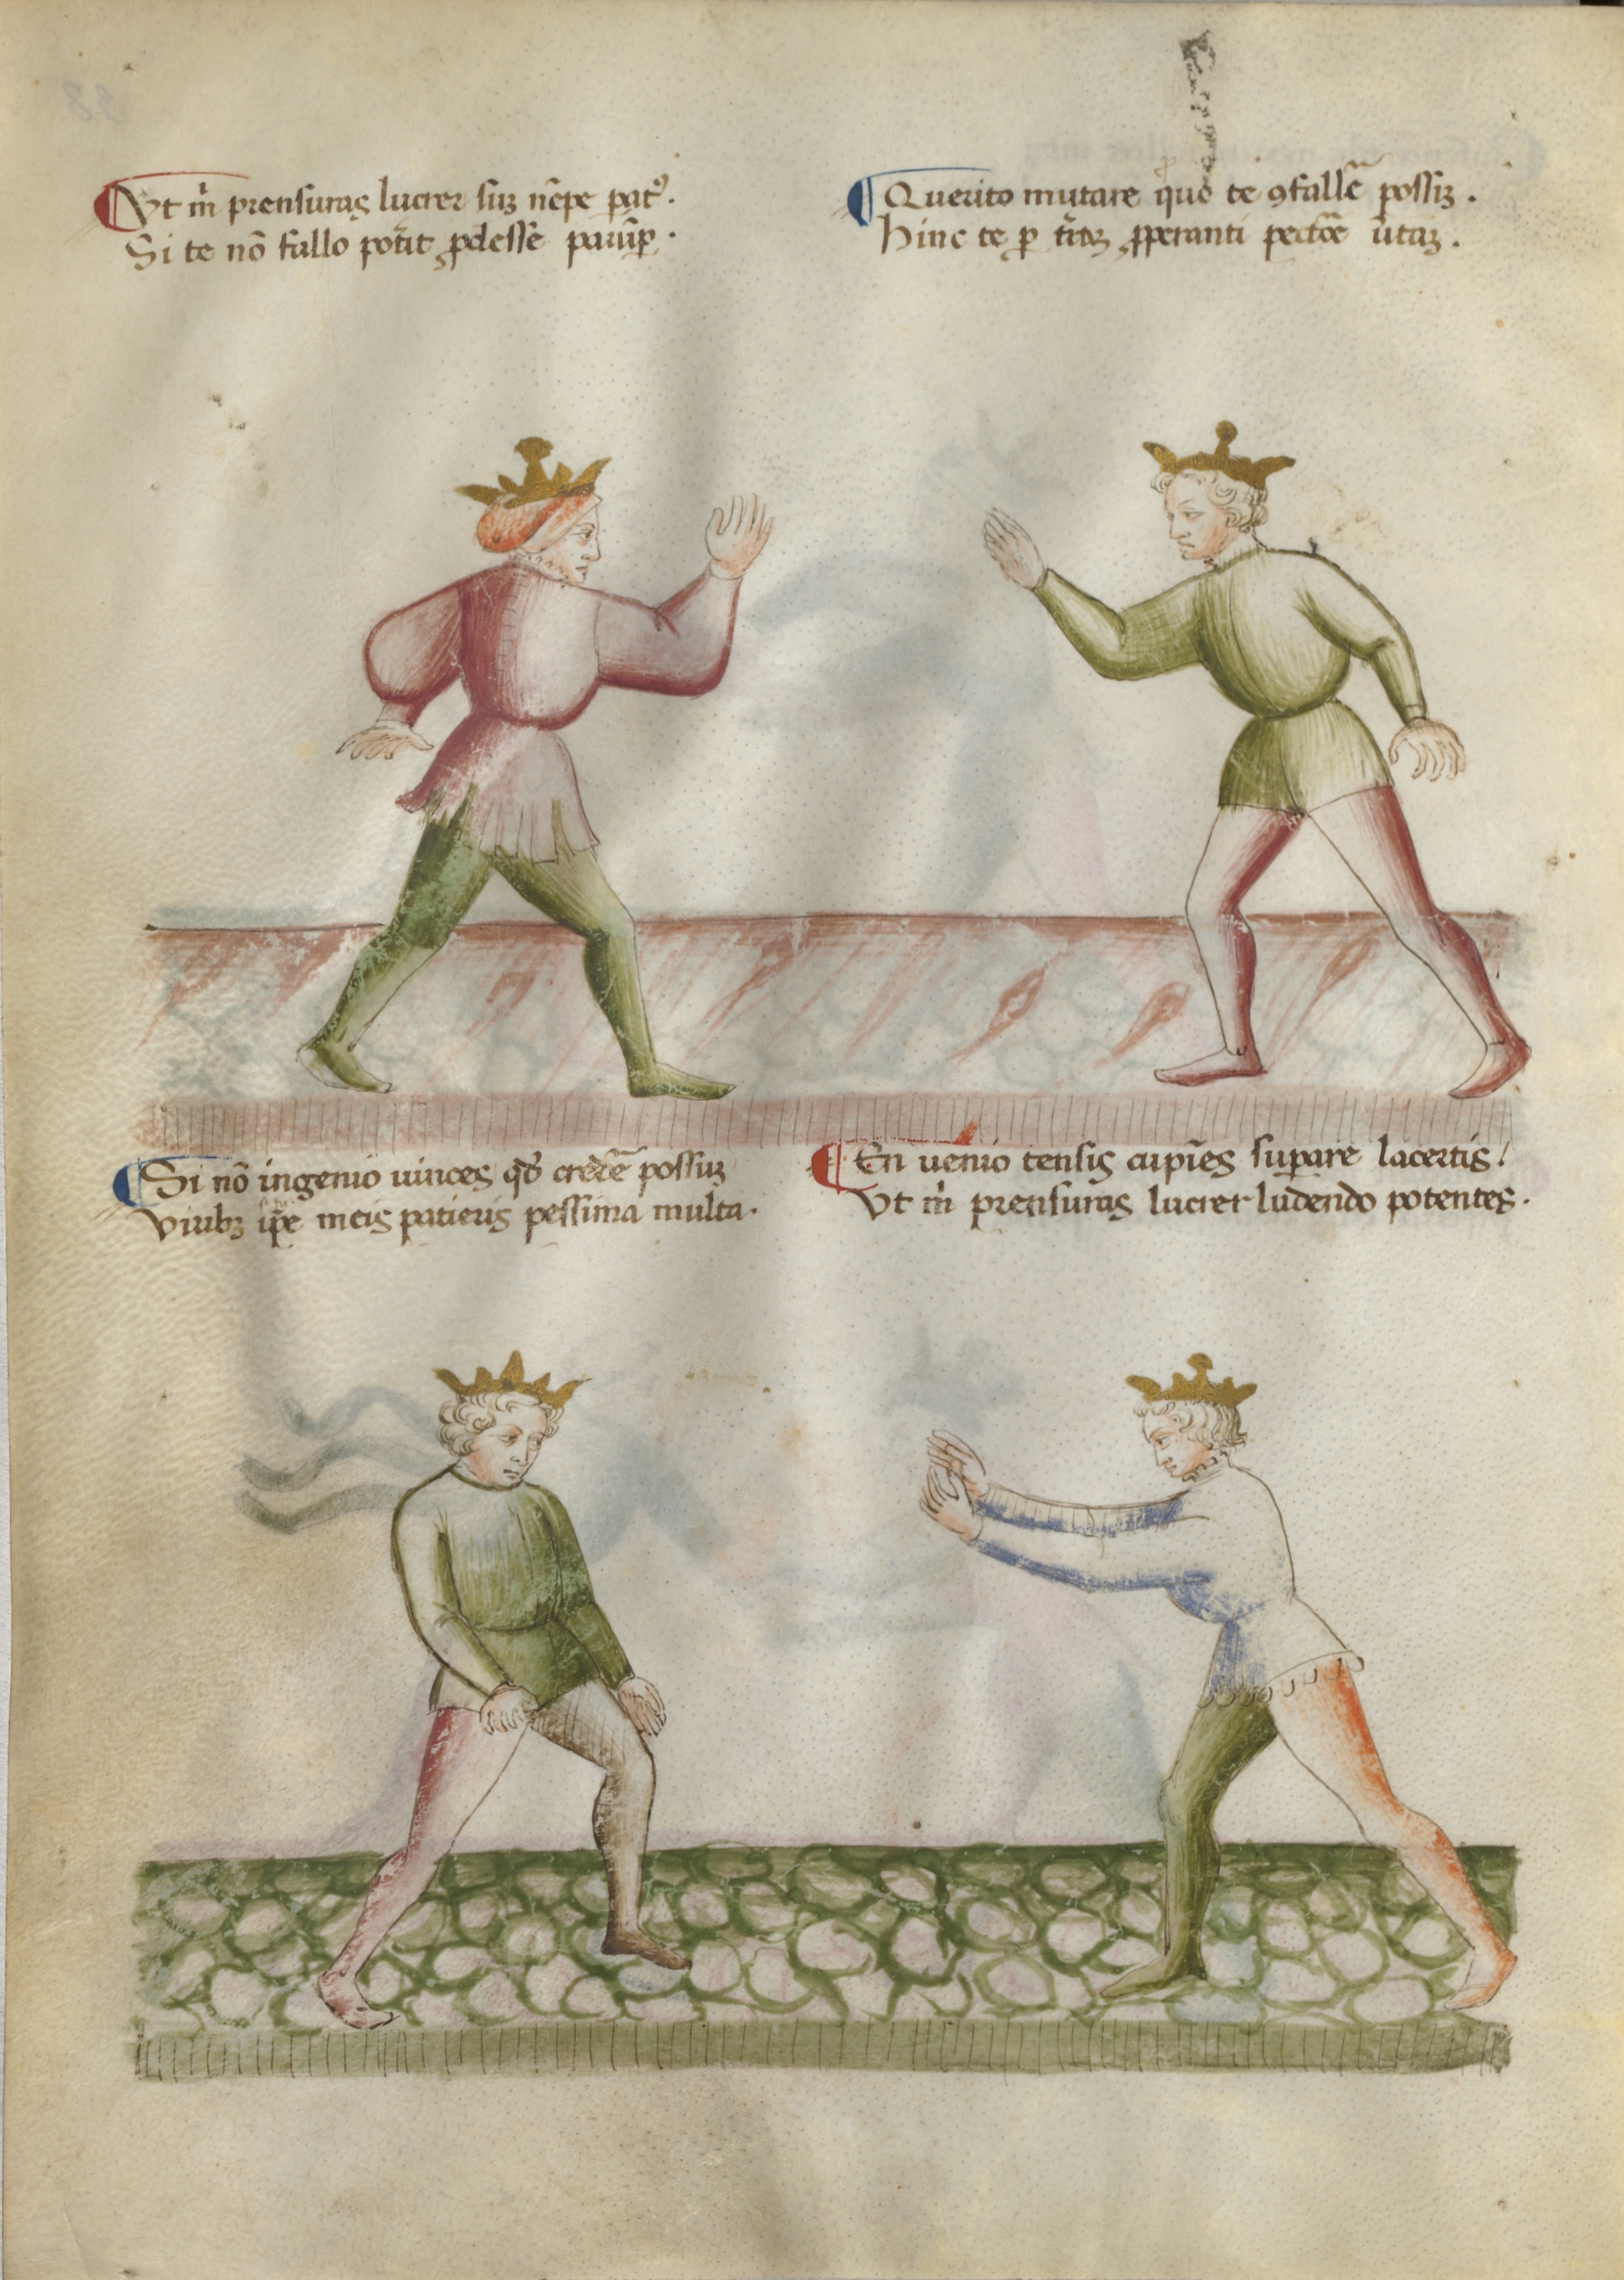 Ut m̃ prensuras lucrer suʒ nẽpe pat⁹.
Si te nõ fallo pot̃it ꝓdesse paruꝑ.
Querito mutare quo te ꝯfallẽ possiʒ.
Hinc te ꝑ ꝓperanti pectõe
Si nõ ingenio uinces qđ credẽ possuʒ
Viribʒ ip̃e meis patieris pessima multa.
En uenio tensis cupiẽs suꝑare lacertis.
Ut m̃ prensuras lucrer ludendo potentes.